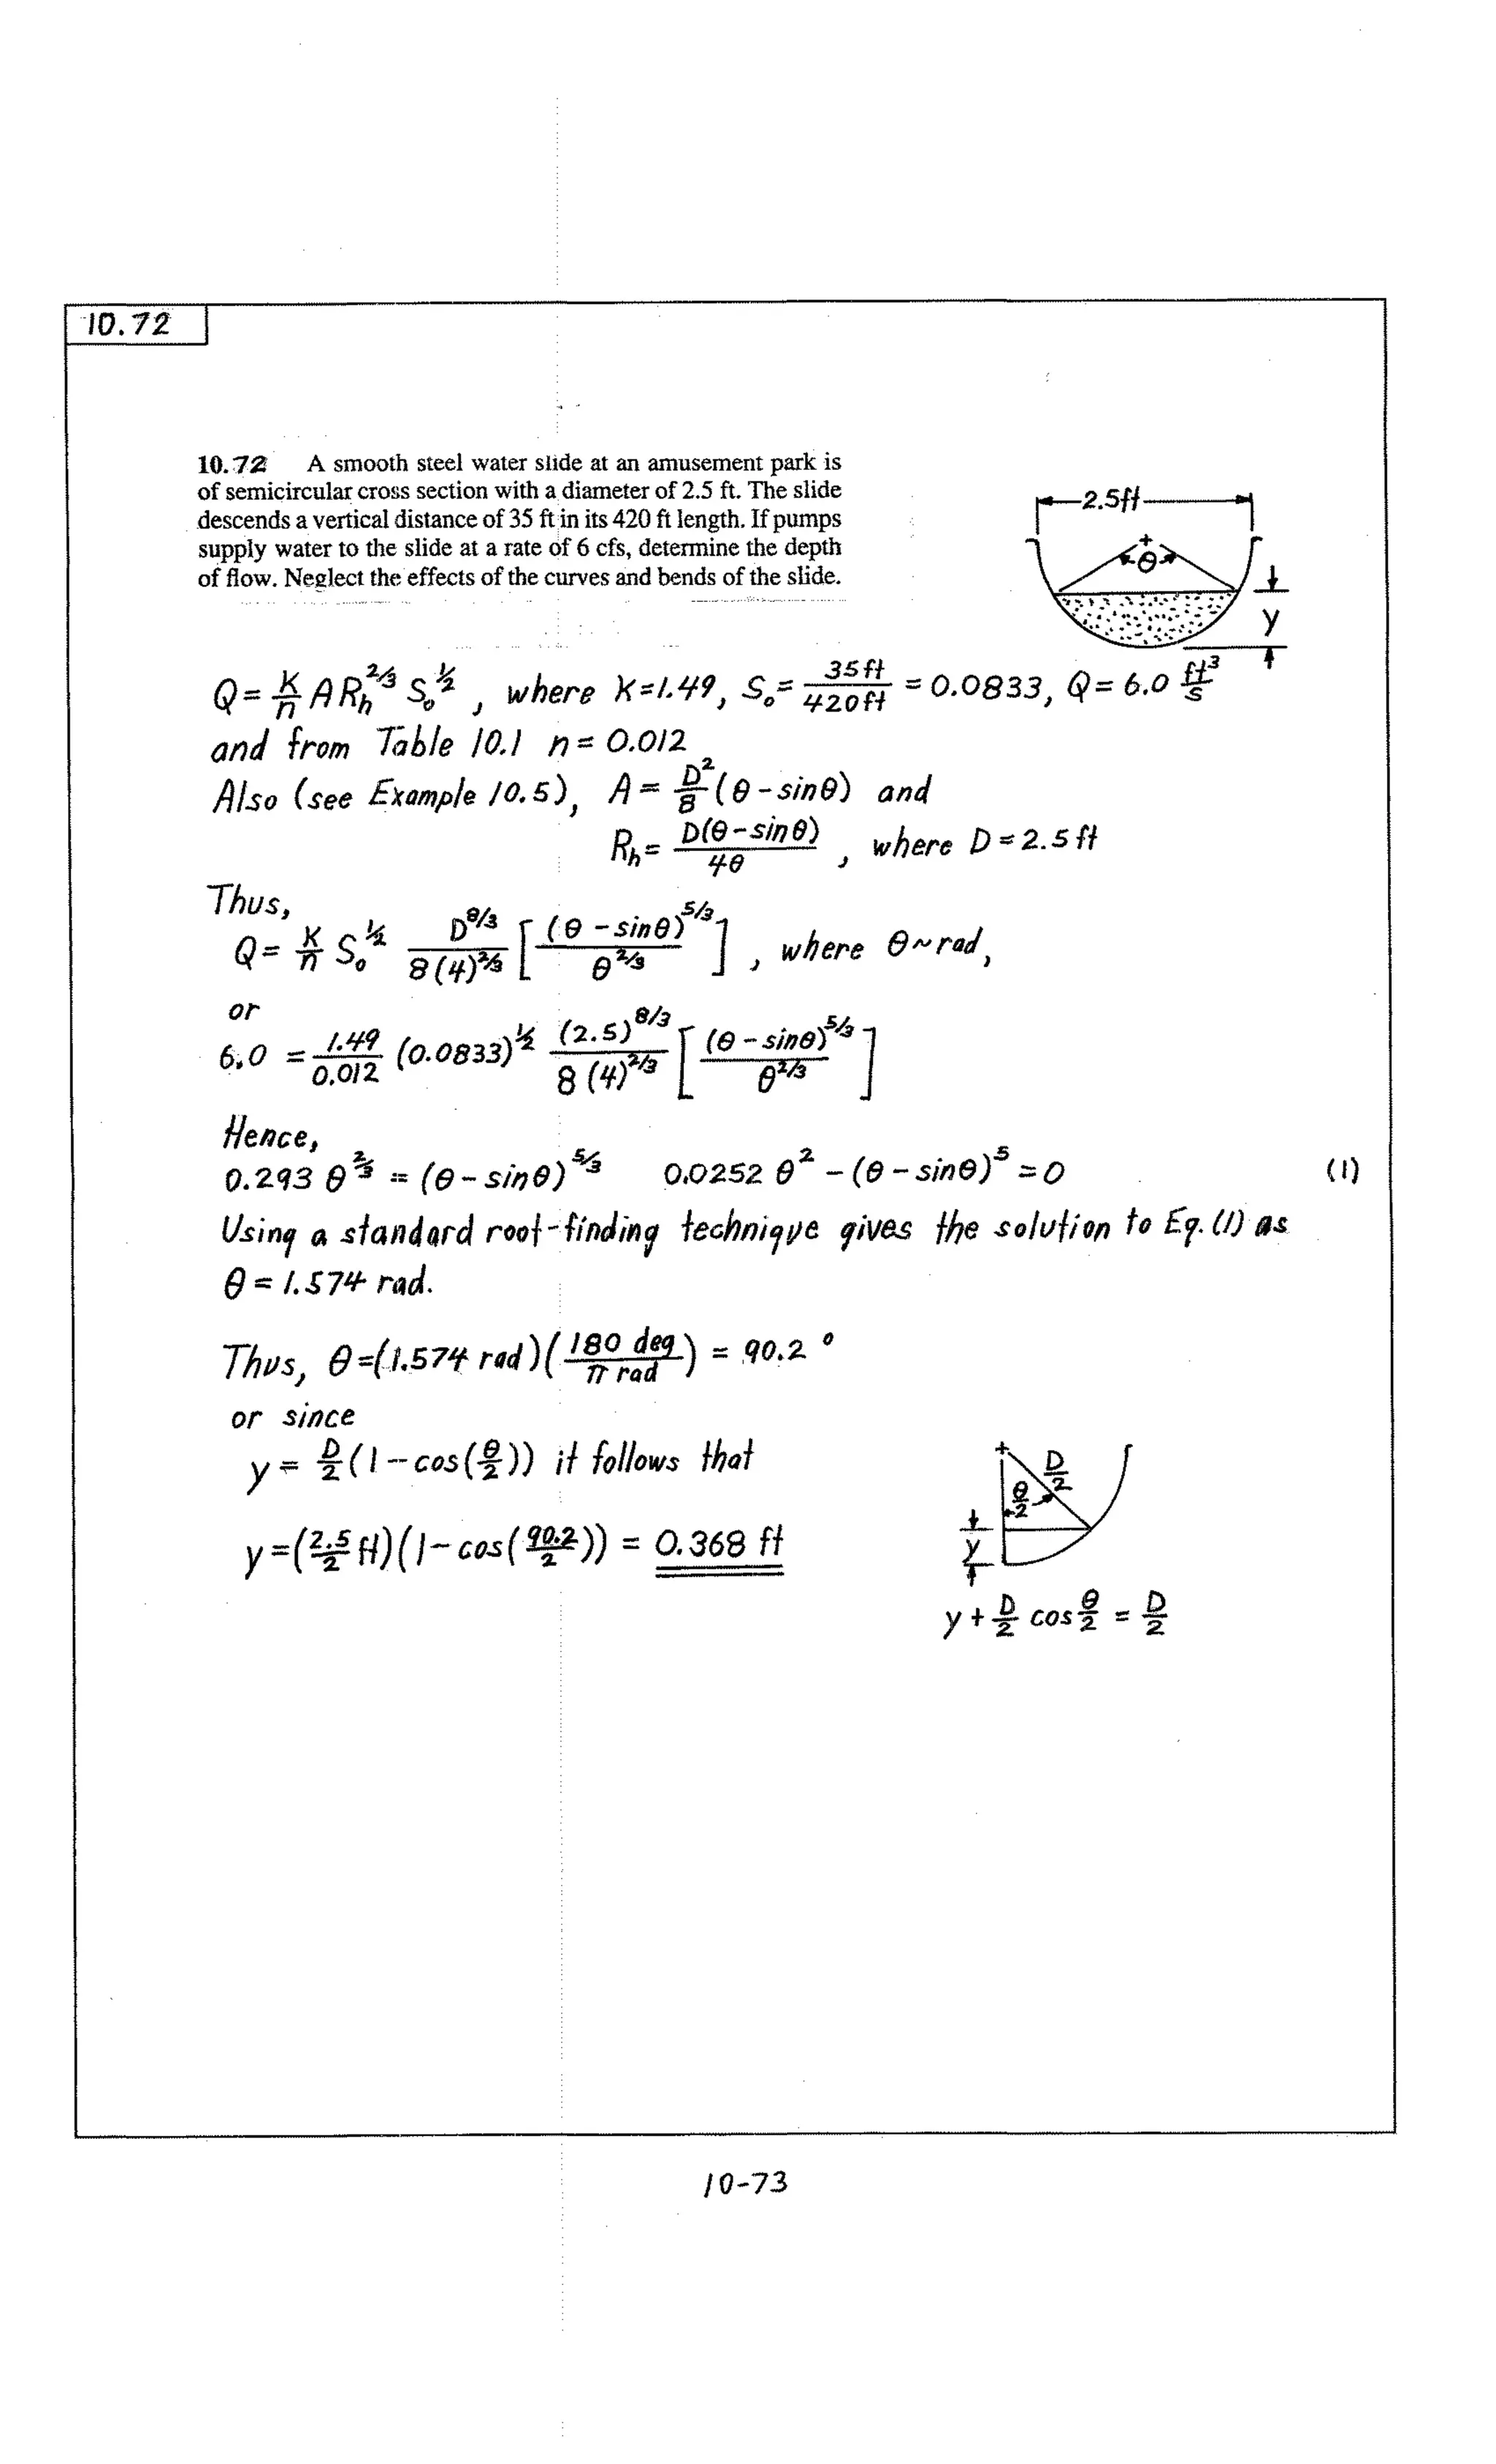 10.72
10.72 A smooth steel water slide at an amusement park is
of semicircular cross section with a diameter of 2.5 ft. The slide
descends a vertical distance of 35 ft in its 420 ft length. If pumps
supply water to the slide at a rate of 6 cfs, determine the depth
of flow. Neglect the effects of the curves and bends of the slide.
2.5ft
θ
y
Q = K/n A R_h^2/3 S_o^1/2 , where K=1.49, S_o = 35ft/420ft = 0.0833, Q = 6.0 ft³/s
and from Table 10.1 n = 0.012
Also (see Example 10.5), A = D²/8 (θ - sinθ) and
R_h = D(θ-sinθ)/4θ , where D = 2.5 ft
Thus,
Q = K/n S_o^1/2 D^8/3 / 8(4)^2/3 [ (θ - sinθ)^5/3 / θ^2/3 ] , where θ ~ rad,
or
6.0 = 1.49/0.012 (0.0833)^1/2 (2.5)^8/3 / 8(4)^2/3 [ (θ - sinθ)^5/3 / θ^2/3 ]
Hence,
0.293 θ^2/3 = (θ - sinθ)^5/3 0.0252 θ² - (θ - sinθ)^5 = 0 (1)
Using a standard root-finding technique gives the solution to Eq. (1) as
θ = 1.574 rad.
Thus, θ = (1.574 rad)(180 deg/π rad) = 90.2 °
or since
y = D/2 (1 - cos(θ/2)) it follows that
y = (2.5/2 ft)(1 - cos(90.2/2)) = 0.368 ft
D/2
θ/2
y
y + D/2 cos θ/2 = D/2
10-73